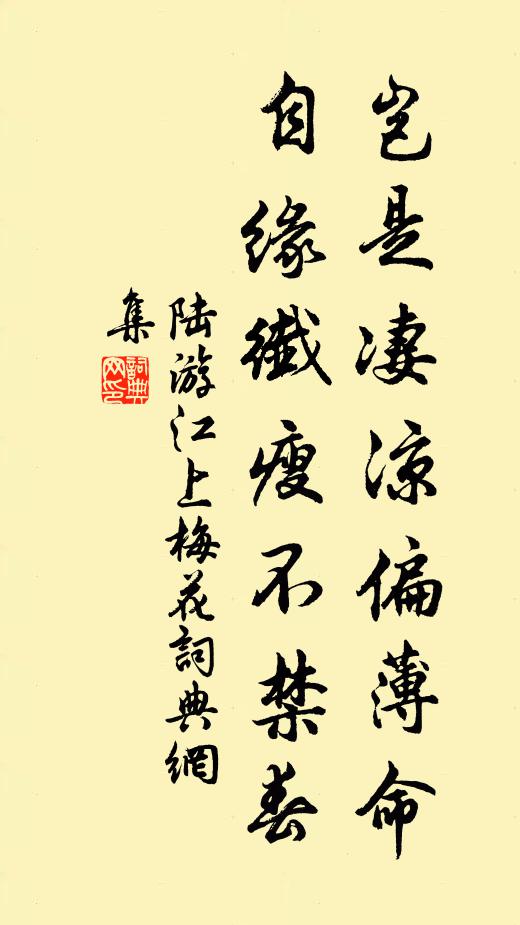 豈是凄涼偏薄命
自緣纖瘦不禁春
陆游江上梅花詞典網
集
詞典
网印